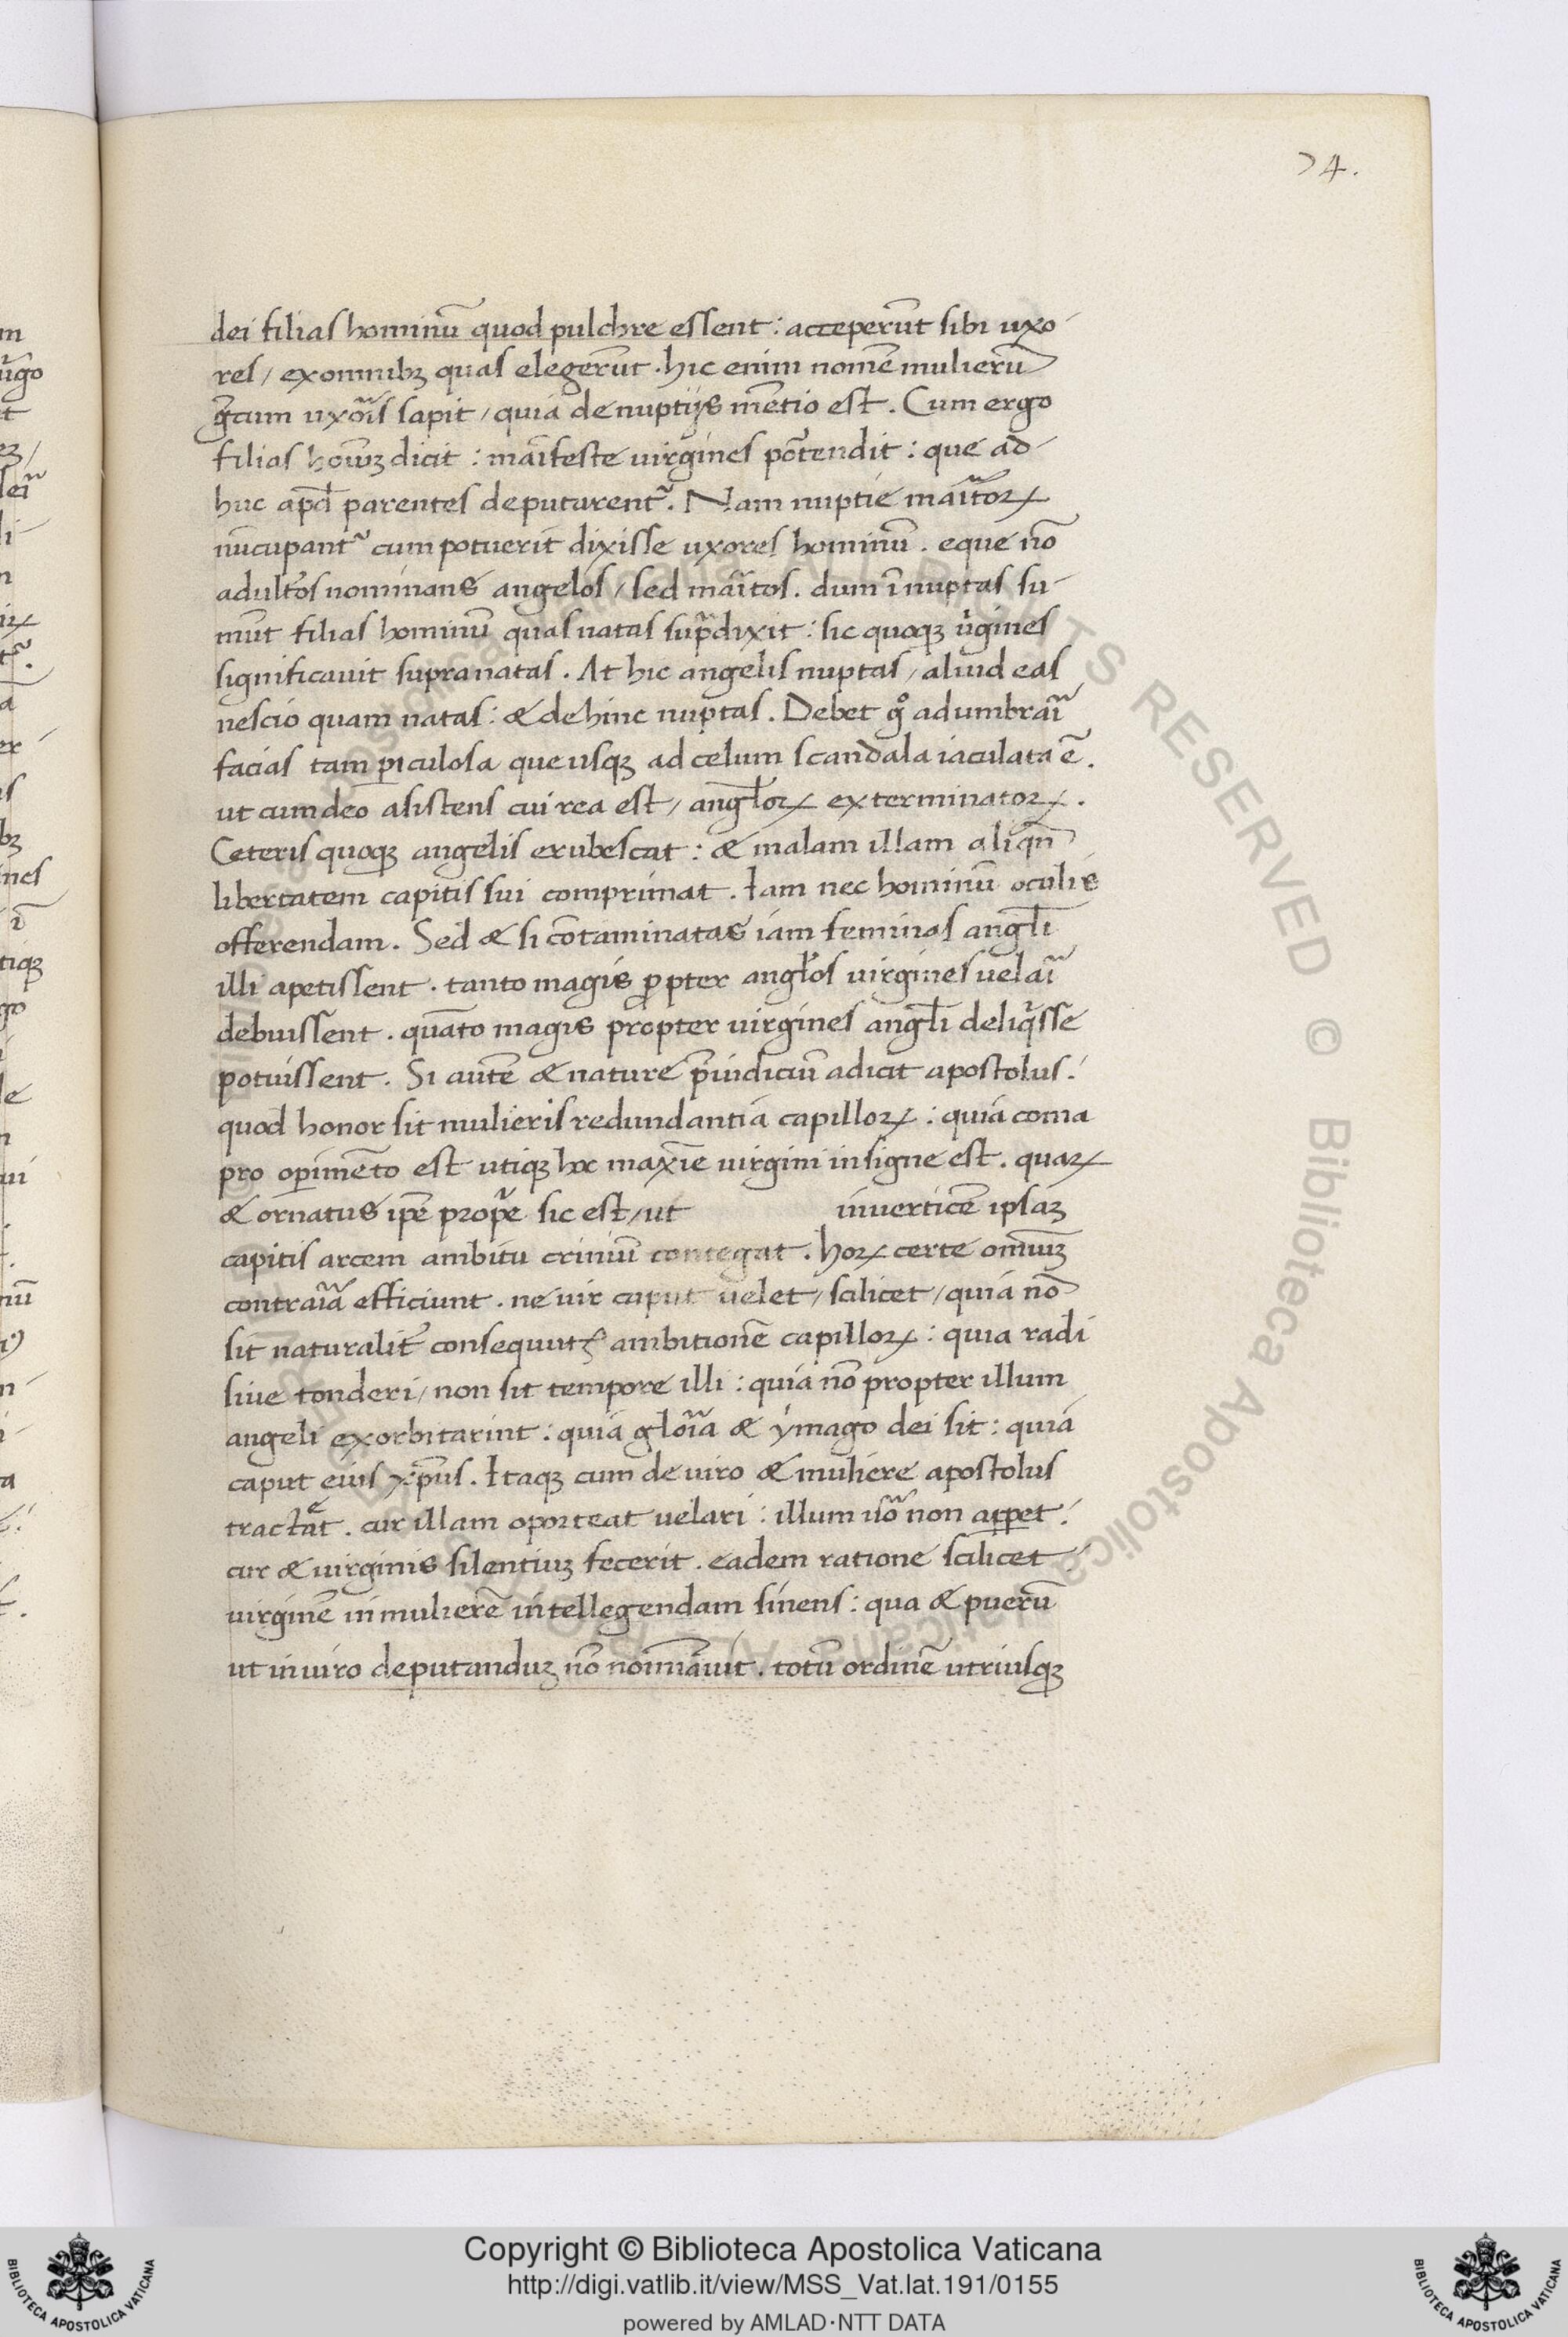 74.
dei filias hominū quod pulchre essent: acceperūt sibi uxo-
res / ex omnibꝫ quas elegerūt. hic enim nomē mulierū
grecum uxoris sapit / quia de nuptijs mētio est. Cum ergo
filias homīꝫ dicit: maīfeste virgines portendit: que ad-
huc apd parentes deputarentᷣ. Nam nuptie maritoꝝ
nūcupantᷣ cum potuerit dixisse uxores hominū. eque nō
adultos nominans angelos / sed maritos. dum īnuptas su-
mūt filias hominū quas natas supra dixit: sic quoqꝫ vͥgines
significauit supra natas. At hic angelis nuptas / aliud eas
nescio quam natas: & dehinc nuptas. Debet gͦ adumbrari
facias tam ꝑiculosa que usqꝫ ad celum scandala iaculata ē.
ut cum deo asistens cui rea est / angl̄oꝝ exterminatoꝝ.
Ceteris quoqꝫ angelis erubescat: & malam illam aliqn̄
libertatem capitis sui comprimat. Iam nec hominū oculis
offerendam. Sed & si cōtaminatas iam feminas angl̄i
illi apetissent. tanto magis ꝓpter angl̄os virgines uelari
debuissent. quāto magis propter virgines angl̄i deliqͥsse
potuissent. Si autē & nature p̄iudiciū adicit apostolus:
quod honor sit mulieris redundantia capilloꝝ: quia coma
pro oꝑimēto est utiqꝫ hoc maxīe virgini insigne est. quaꝝ
& ornatus ip̄e propͥe sic est / ut in uerticē ipsaꝫ
capitis arcem ambitu criniū contegat. hoꝝ certe omīuꝫ
contraria efficiunt. ne uir caput uelet / scilicet / quia nō
sit naturalit̄ consequutꝰ ambitionē capilloꝝ: quia radi
siue tonderi / non sit tempore illi: quia nō propter illum
angeli exorbitarint: quia gloria & ymago dei sit: quia
caput eius xp̄us. Itaqꝫ cum de uiro & muliere apostolus
tractet. cur illam oporteat uelari: illum uō non
cur & virginis silentiuꝫ fecerit. eadem ratione scilicet
virginē in mulierē intellegendam sinens: qua & puerū
ut in uiro deputanduꝫ nō nominauit. totū ordinē utriusqꝫ
Copyright © Biblioteca Apostolica Vaticana
http://digi.vatlib.it/view/MSS_Vat.lat.191/0155
powered by AMLAD·NTT DATA